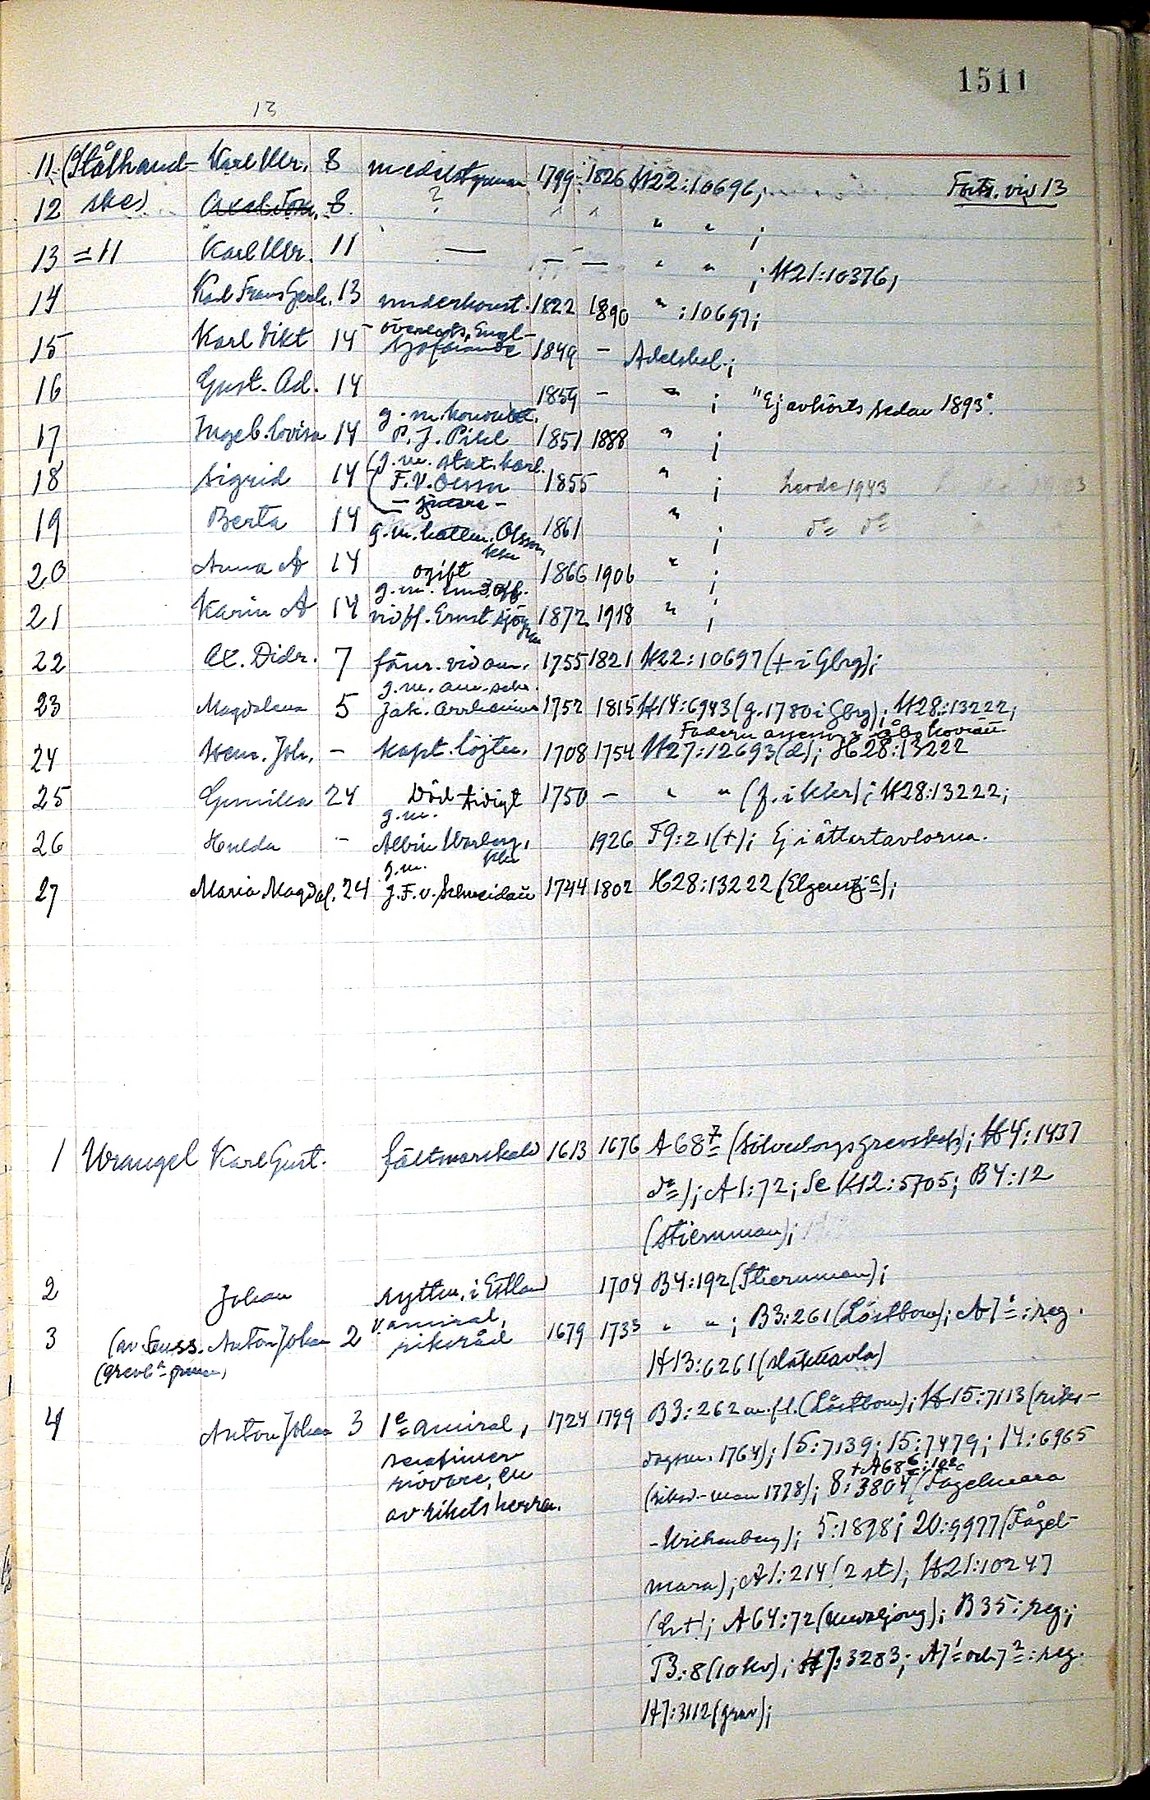 1511
13
11. (Stålhand- Karl Ulr. 8 medelstyrman 1799 1826 H22:10696; Forts. vid 13
12 ske) Axel Tom. 8 ? " " ;
13 =11 Karl Ulr. 11 — — — " " ; H21:10376;
14 Karl Frans Gerh. 13 underkonst. 1822 1890 " :10697;
15 Karl Vikt 14 sjöfarande 1849 — Adelskal.;
16 Gust. Ad. 14 1859 — " ; "Ej avhörts sedan 1893".
g. m.
17 Ingeb. Lovisa 14 P. J. Pihl 1851 1888 " ;
g. m. stat. karl.
18 Sigrid 14 F. V. Olsson 1855 " ; levde 1943
19 Berta 14 g. m. Olsson, 1861 " ; d:o d:o
20 Anna A 14 ogift 1866 1906 " ;
g. m.
21 Karin A 14 vid fl. Ernst Sjögren 1872 1918 " ;
22 Ax. Didr. 7 fänr. vid am. 1755 1821 H22:10697 (+ i Gbrg);
g. m. am. sekr.
23 Magdalena 5 Jak. Arrhenius 1752 1815 H14:6943 (g. 1780 i Gbrg); H28:13222;
Fadern
24 Henr. Joh. – kapt. löjtn. 1708 1754 H27:12693 (d); H28:13222
25 Gunilla 24 Död tidigt 1750 — " " (f. i kkr); H28:13222;
g. m.
26 Hulda – Albin Warberg, kkr 1926 F9:21 (+); Ej i ättartavlorna.
g. m.
27 Maria Magdal. 24 J. F. v. Schneidau 1744 1802 H28:13222 ();
1 Wrangel Karl Gust. fältmarskalk 1613 1676 A68 7 (Sölvesborgs grevskap); H4:1437
d:o); A1:72; Se H12:5705; B4:12
(Stiernman);
2 Johan ryttm. i Estland 1704 B4:192 (Stiernman);
3 (av Sauss. Anton Johan 2 v. amiral, 1679 173 " " ; B3:261 (Löstbom); A7 1:reg.
(grevl. grenen) riksråd H13:6261 (släkttavla)
4 Anton Johan 3 1e amiral, 1724 1799 B3:262 m. fl. (Löstbom); H15:7113 (riks-
serafimer dagsm. 1764); 15:7139; 15:7479; 14:6965
+A68 6:
riddare, en (riksd-man 1778); 8:3804 (Fågelmara
av rikets herrar. -Wrickenberg); 5:1898; 20:9977 (Fågel-
mara); A1:214 (2 st); H21:10247
(h+); A64:72 (); B35:reg.;
T3:8 (10 kv); H7:3283; A7 1 och 7 2:reg.
H7:3112 (grav);